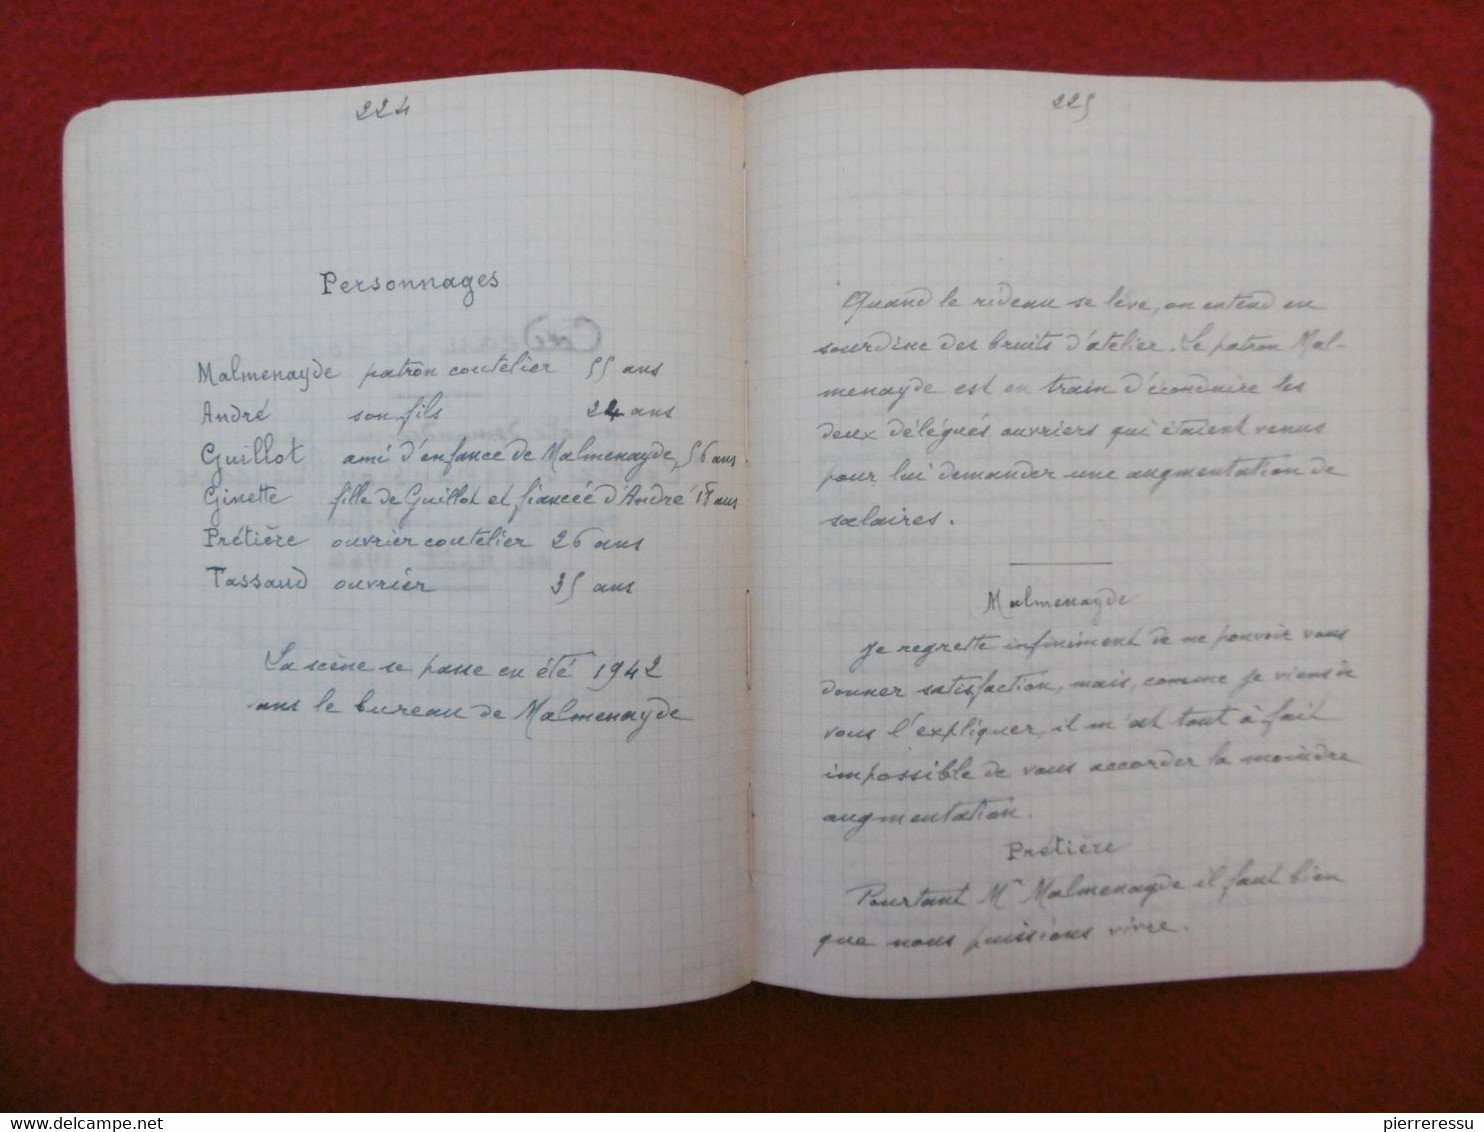 224
Personnages
Malmenayde patron coutelier 55 ans
André son fils 24 ans
Guillot ami d'enfance de Malmenayde, 56 ans
Ginette fille de Guillot et fiancée d'André ans
Prétière ouvrier coutelier 26 ans
Tassaud ouvrier 35 ans
La scène se passe en été 1942
ans le bureau de Malmenayde
225
Quand le rideau se lève, on entend en
sourdine des bruits d'atelier. Le patron Mal-
menayde est en train d'éconduire les
deux délégués ouvriers qui étaient venus
pour lui demander une augmentation de
salaires.
Malmenayde
Je regrette infiniment de ne pouvoir vous
donner satisfaction, mais, comme je viens de
vous l'expliquer, il m'est tout à fait
impossible de vous accorder la moindre
augmentation.
Prétière
Pourtant Mr Malmenayde il faut bien
que nous puissions vivre.
www.delcampe.net
pierreressu